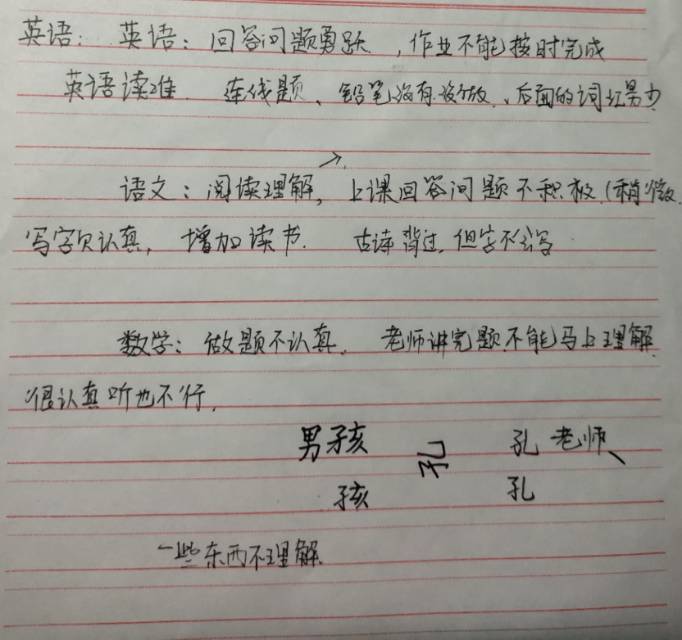 英语：英语：回答问题勇跃，作业不能按时完成
英语读准 连线题、铅笔没有没做、后面的词
语文：阅读理解，上课回答问题不积极（稍微
写字欠认真，增加读书. 古诗背过，但字不会写
数学：做题不认真. 老师讲完题不能马上理解
很认真听也不行，
男孩 孔 孔老师、
孩 孔
一些东西不理解.